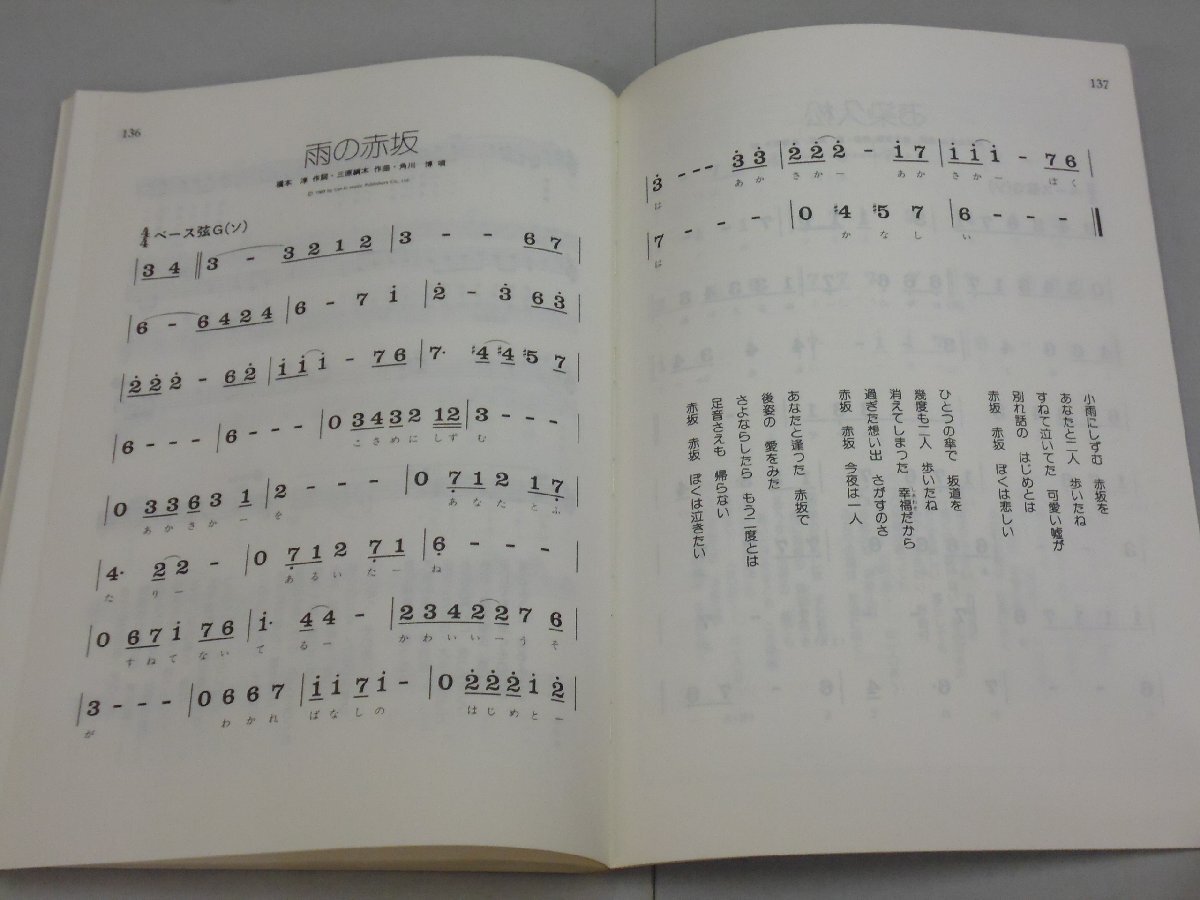 136
雨の赤坂
橋本 淳 作詞・三原綱木 作曲・角川 博 唄
4/4 ベース弦G(ソ)
|3 4 ||3 - 3 2 1 2 |3 - - 6 7 |
|6 - 6 4 2 4 |6 - 7 i |2̇ - 3̇ 6 3̇ |
|2̇ 2̇ 2̇ - 6 2̇ |i i i - 7 6 |7・ #4 #4 #5 7 |
|6 - - - |6 - - - |0 3 4 3 2 1 2 |3 - - - |
こ さ め に し ず む
|0 3 3 6 3 1 |2 - - - |0 7̣ 1 2 1 7̣ |
あ か さ か ー を あ な た と ふ
|4・ 2 2 - |0 7̣ 1 2 7̣ 1 |6̣ - - - |
た り ー あ る い た ー ね
|0 6 7 i 7 6 |i・ 4 4 - |2 3 4 2 2 7 6 |
す ね て な い て る ー か わ い い ー う そ
|3 - - - |0 6 6 7 |i i 7 i - |0 2̇ 2̇ 2̇ i 2̇ |
が わ か れ ば な し の は じ め と ー
137
|3̇ - - - 3̇ 3̇ |2̇ 2̇ 2̇ - i 7 |i i i - 7 6 |
は あ か さ か ー あ か さ か ー ぼ く
|7 - - - |0 #4 #5 7 |6 - - - ||
は か な し い
小雨にしずむ 赤坂を
あなたと二人 歩いたね
すねて泣いてた 可愛い嘘が
別れ話の はじめとは
赤坂 赤坂 ぼくは悲しい
ひとつの傘で 坂道を
幾度も二人 歩いたね
消えてしまった 幸福だから
過ぎた想い出 さがすのさ
赤坂 赤坂 今夜は一人
あなたと逢った 赤坂で
後姿の 愛をみた
さよならしたら もう二度とは
足音さえも 帰らない
赤坂 赤坂 ぼくは泣きたい